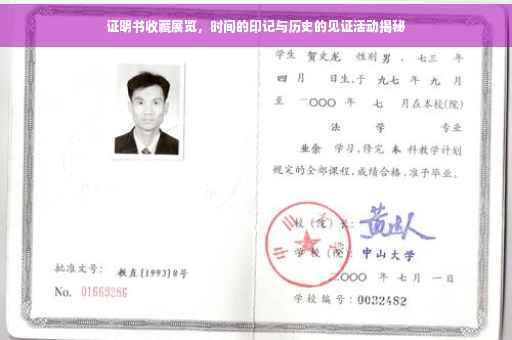 证明书收藏展览，时间的印记与历史的见证活动揭秘
学生 贺文龙 性别 男 ，七三 年
四 月 日生，于 九七 年 九 月
至 二〇〇〇 年 七 月在本校(院)
法 学 专业
业余 学习，修完 本 科教学计划
规定的全部课程，成绩合格，准予毕业。
校(院)长：
学 校(院)： 中山大学
二〇〇〇 年 七 月 一 日
学校编号：0032482
批准文号： 教直[1993]8号
No. 01669286